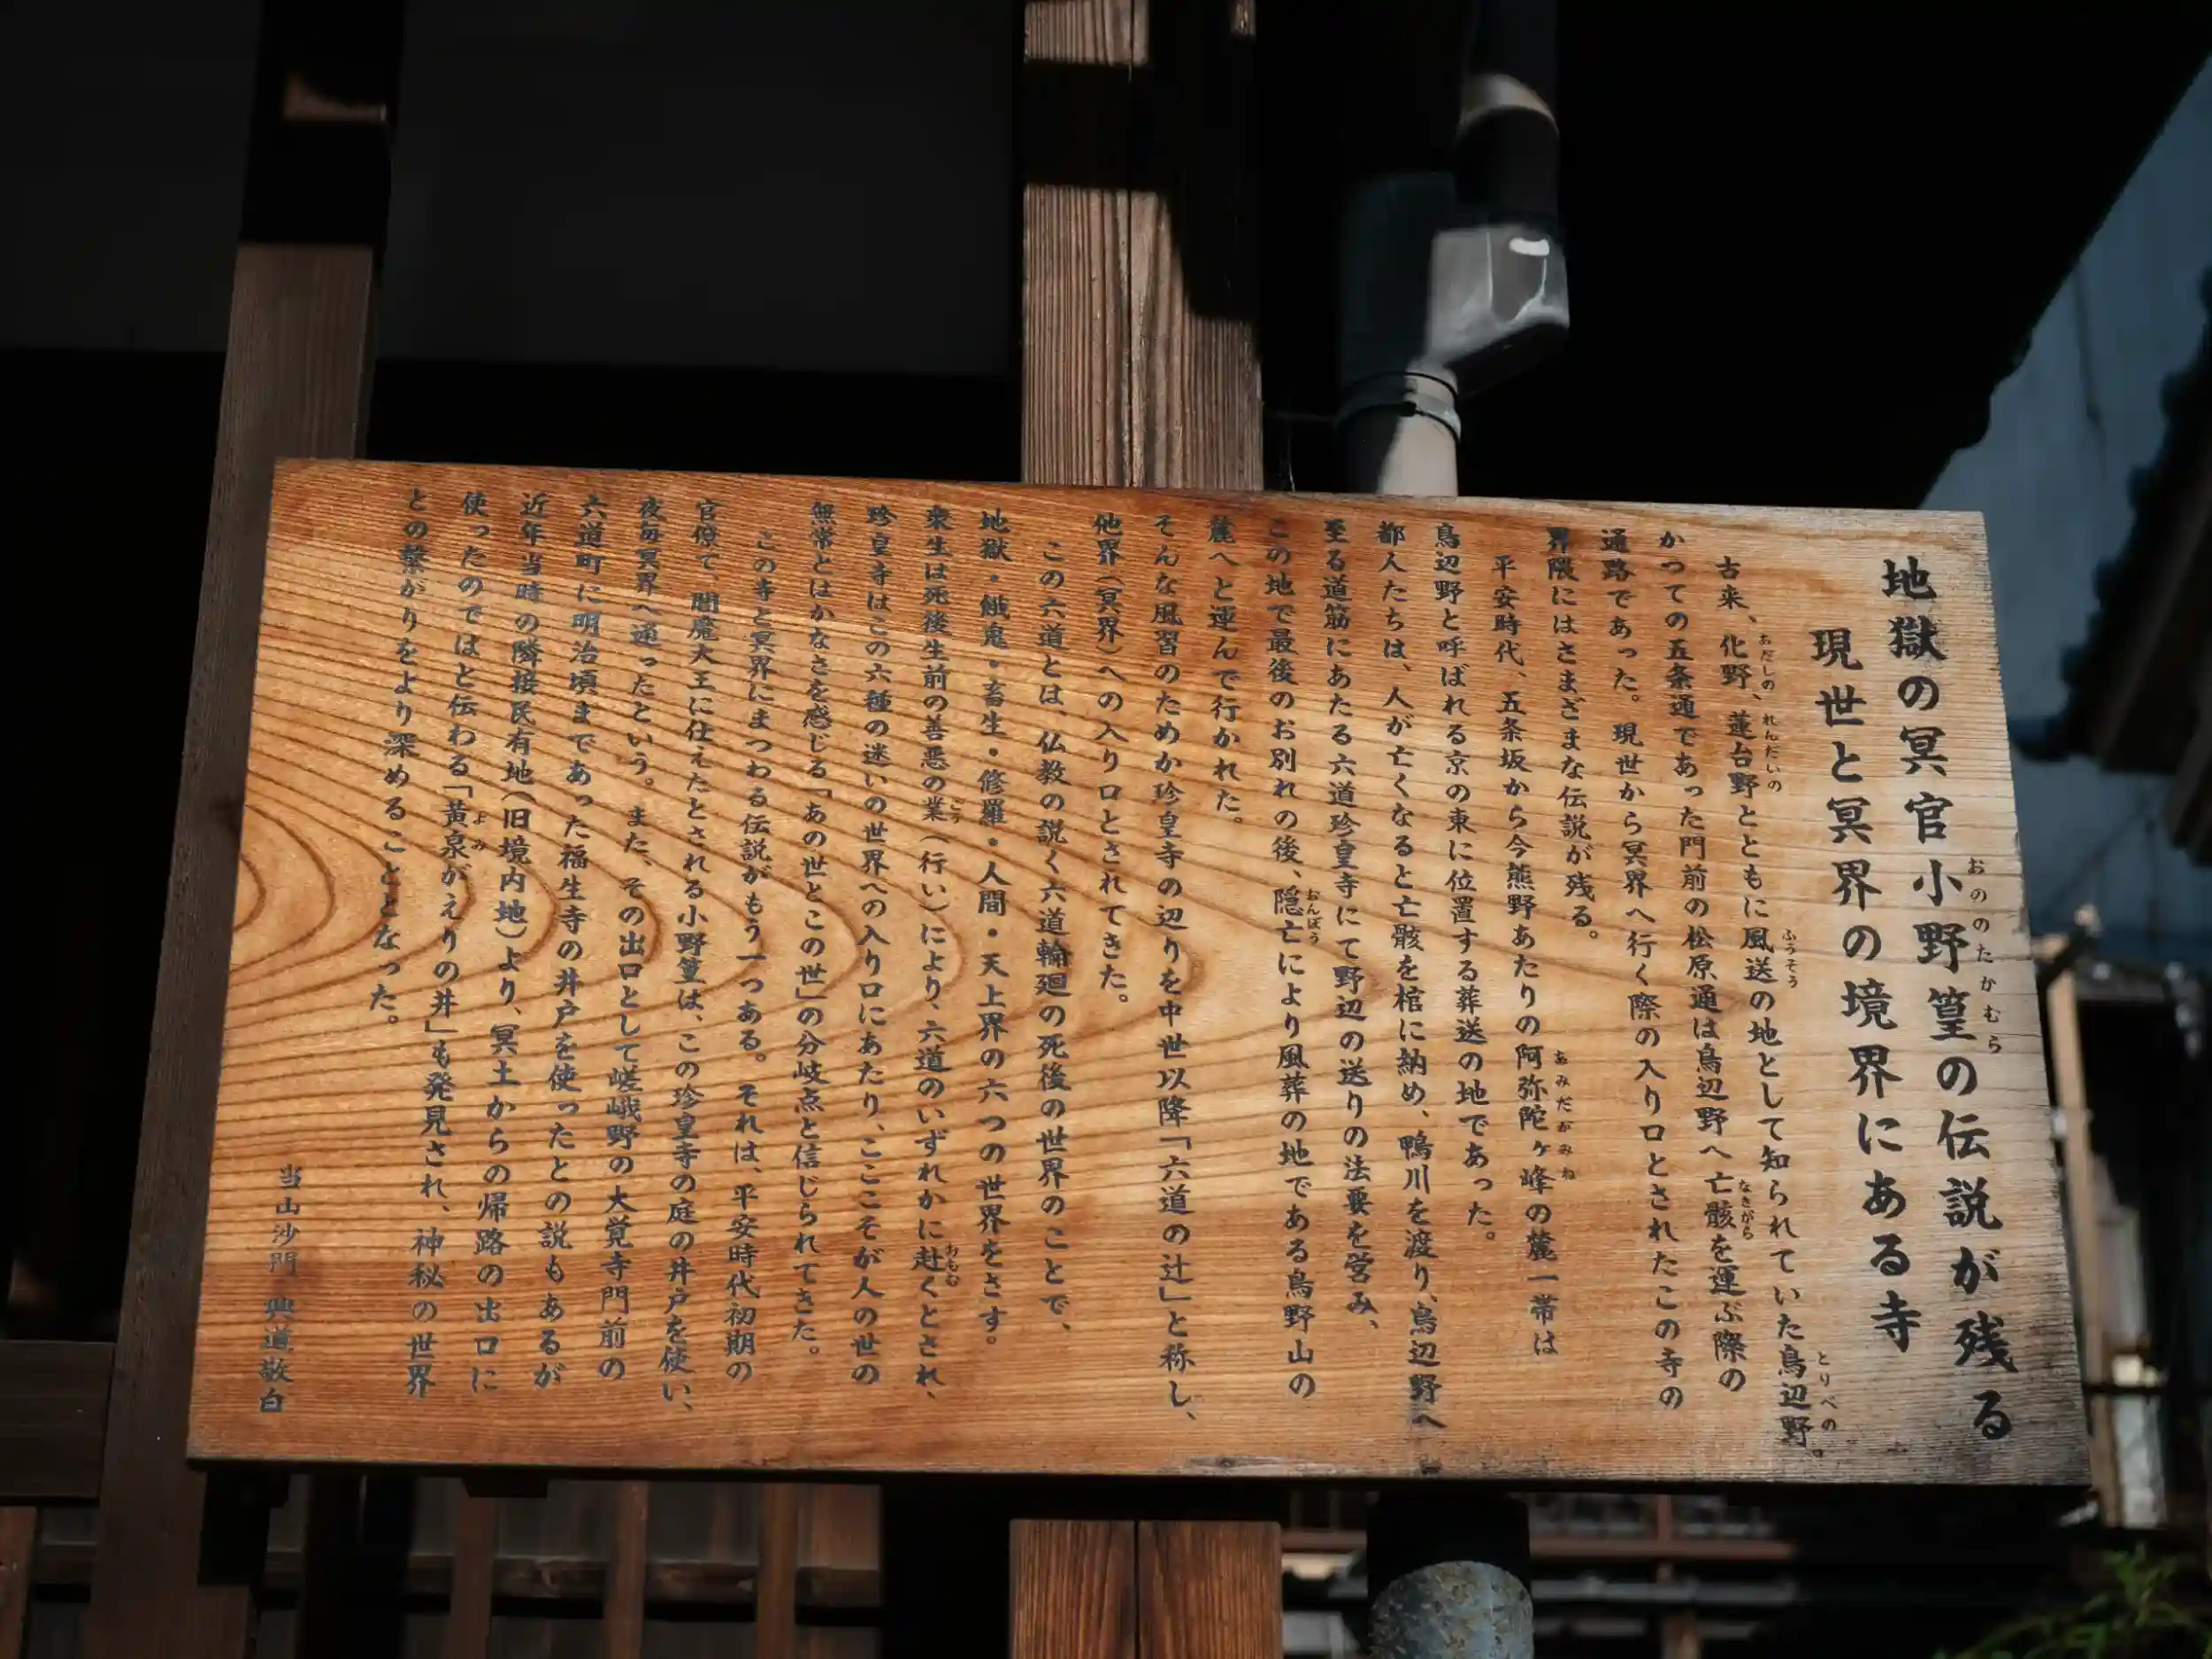 地獄の冥官小野篁の伝説が残る
おののたかむら
現世と冥界の境界にある寺
古来、化野、蓮台野とともに風送の地として知られていた鳥辺野。
あだしの れんだいの ふうそう とりべの
かつての五条通であった門前の松原通は鳥辺野へ亡骸を運ぶ際の
なきがら
通路であった。現世から冥界へ行く際の入り口とされたこの寺の
界隈にはさまざまな伝説が残る。
平安時代、五条坂から今熊野あたりの阿弥陀ヶ峰の麓一帯は
あみだがみね
鳥辺野と呼ばれる京の東に位置する葬送の地であった。
都人たちは、人が亡くなると亡骸を棺に納め、鴨川を渡り、鳥辺野へ
至る道筋にあたる六道珍皇寺にて野辺の送りの法要を営み、
この地で最後のお別れの後、隠亡により風葬の地である鳥野山の
おんぼう
麓へと運んで行かれた。
そんな風習のためか珍皇寺の辺りを中世以降「六道の辻」と称し、
他界(冥界)への入り口とされてきた。
この六道とは、仏教の説く六道輪廻の死後の世界のことで、
地獄・餓鬼・畜生・修羅・人間・天上界の六つの世界をさす。
衆生は死後生前の善悪の業(行い)により、六道のいずれかに赴くとされ、
ごう おもむ
珍皇寺はこの六種の迷いの世界への入り口にあたり、ここそが人の世の
無常とはかなさを感じる「あの世とこの世」の分岐点と信じられてきた。
この寺と冥界にまつわる伝説がもう一つある。それは、平安時代初期の
官僚で、閻魔大王に仕えたとされる小野篁は、この珍皇寺の庭の井戸を使い、
夜毎冥界へ通ったという。また、その出口として嵯峨野の大覚寺門前の
六道町に明治頃まであった福生寺の井戸を使ったとの説もあるが
近年当時の隣接民有地(旧境内地)より、冥土からの帰路の出口に
使ったのではと伝わる「黄泉がえりの井」も発見され、神秘の世界
よみ
との繋がりをより深めることとなった。
当山沙門 興道敬白